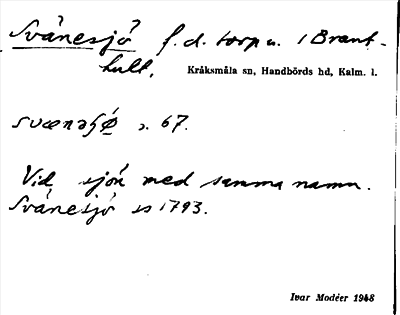 Svånesjö f.d. torp u. / Brant-
hult. Kråksmåla sn, Handbörds hd, Kalm. l.
svænəɧø 2. 67.
Vid sjön med samma namn.
Svånesjö 1793.
Ivar Modéer 1948